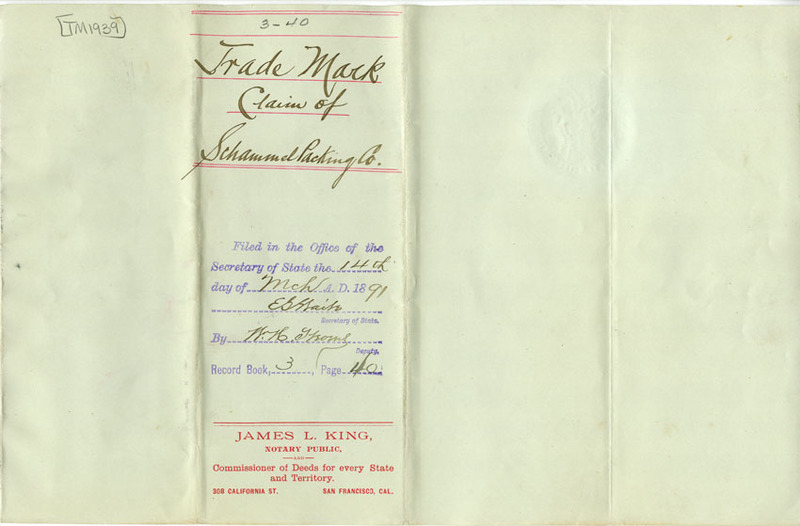 [TM1939]
3-40
Trade Mark
Claim of
Schammel Packing Co.
Filed in the Office of the
Secretary of State the 14th
day of Mch A. D. 1891
E G Waite
Secretary of State.
By W. H.
Deputy.
Record Book, 3, Page 40
JAMES L. KING,
NOTARY PUBLIC,
—AND—
Commissioner of Deeds for every State
and Territory.
308 CALIFORNIA ST. SAN FRANCISCO, CAL.